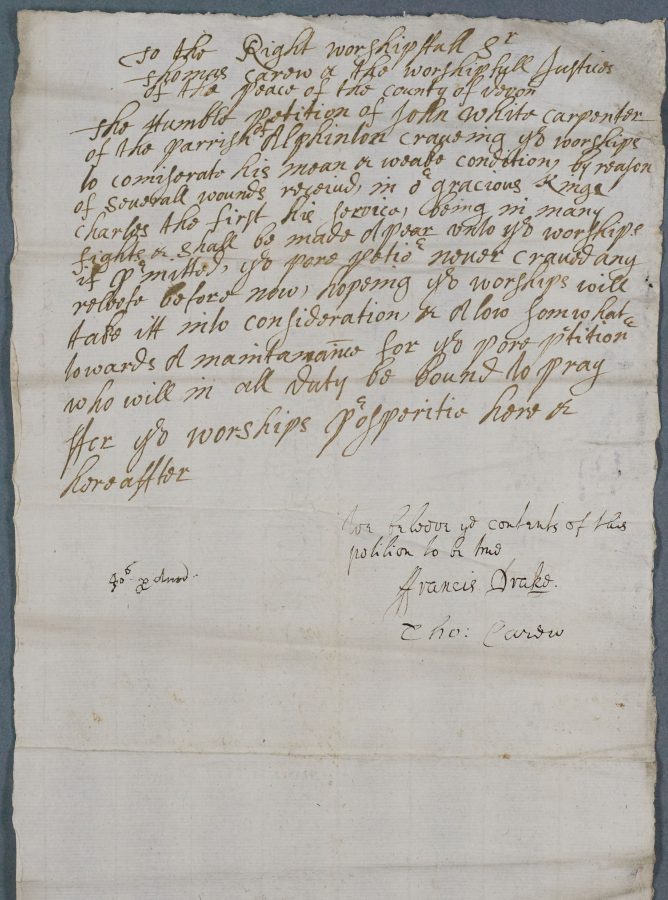 To the Right worshipffull Sr
Thomas Carew & the worshipfull Justices
of the peace of the county of devon
The Humble petition of John White carpenter
of the parrish of Alphinton craveing yor worships
to comiserate his mean & weake condition, by reason
of severall wounds receivd, in or gracious Kings
Charles the first his service, being in many
fights & shall be made Apear unto yor worships
if prmitted, yor pore petior never craved any
releefe before now, hopeing yor worships will
take itt into consideration, & Alow somwhat
towards A maintanannce for yor pore ptition
who will in all duty be bound to pray
ffor yor worships prosperitie here &
hereaffter
We beleeve ye contents of this
petition to be true
40s p Annd
ffrancis Drake.
Tho: Carew